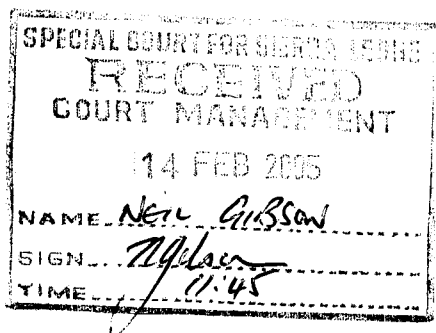 SPECIAL COURT FOR SIERRA LEONE
RECEIVED
COURT MANAGEMENT
14 FEB 2005
NAME NEIL GIBSON
SIGN
TIME 11:45